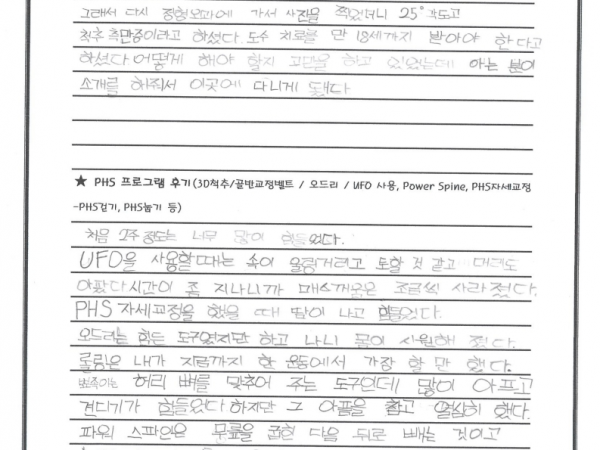 그래서 다시 정형외과에 가서 사진을 찍었더니 25° 각도고
척추측만증이라고 하셨다. 도수 치료를 만 18세까지 받아야 한다고
하셨다 어떻게 해야 할지 고민을 하고 있었는데 아는 분이
소개를 해줘서 이곳에 다니게 됐다
★ PHS 프로그램 후기(3D척추/골반교정벨트 / 오드리 / UFO 사용, Power Spine, PHS자세교정
-PHS걷기, PHS눕기 등)
처음 2주 정도는 너무 많이 힘들었다.
UFO을 사용할때는 속이 울렁거리고 토할 것 같고 머리도
아팠다 시간이 좀 지나니까 매스꺼움은 조금씩 사라졌다.
PHS 자세교정을 했을 때 땀이 나고 힘들었다.
오드리는 힘든 도구였지만 하고 나니 몸이 시원해 졌다.
롤링은 내가 지금까지 한 운동에서 가장 할 만 했다.
허리 뼈를 맞추어 주는 도구인데 많이 아프고
견디기가 힘들었다 하지만 그 아픔을 참고 열심히 했다.
파워 스파인은 무릎을 굽힌 다음 뒤로 빼는 것이고